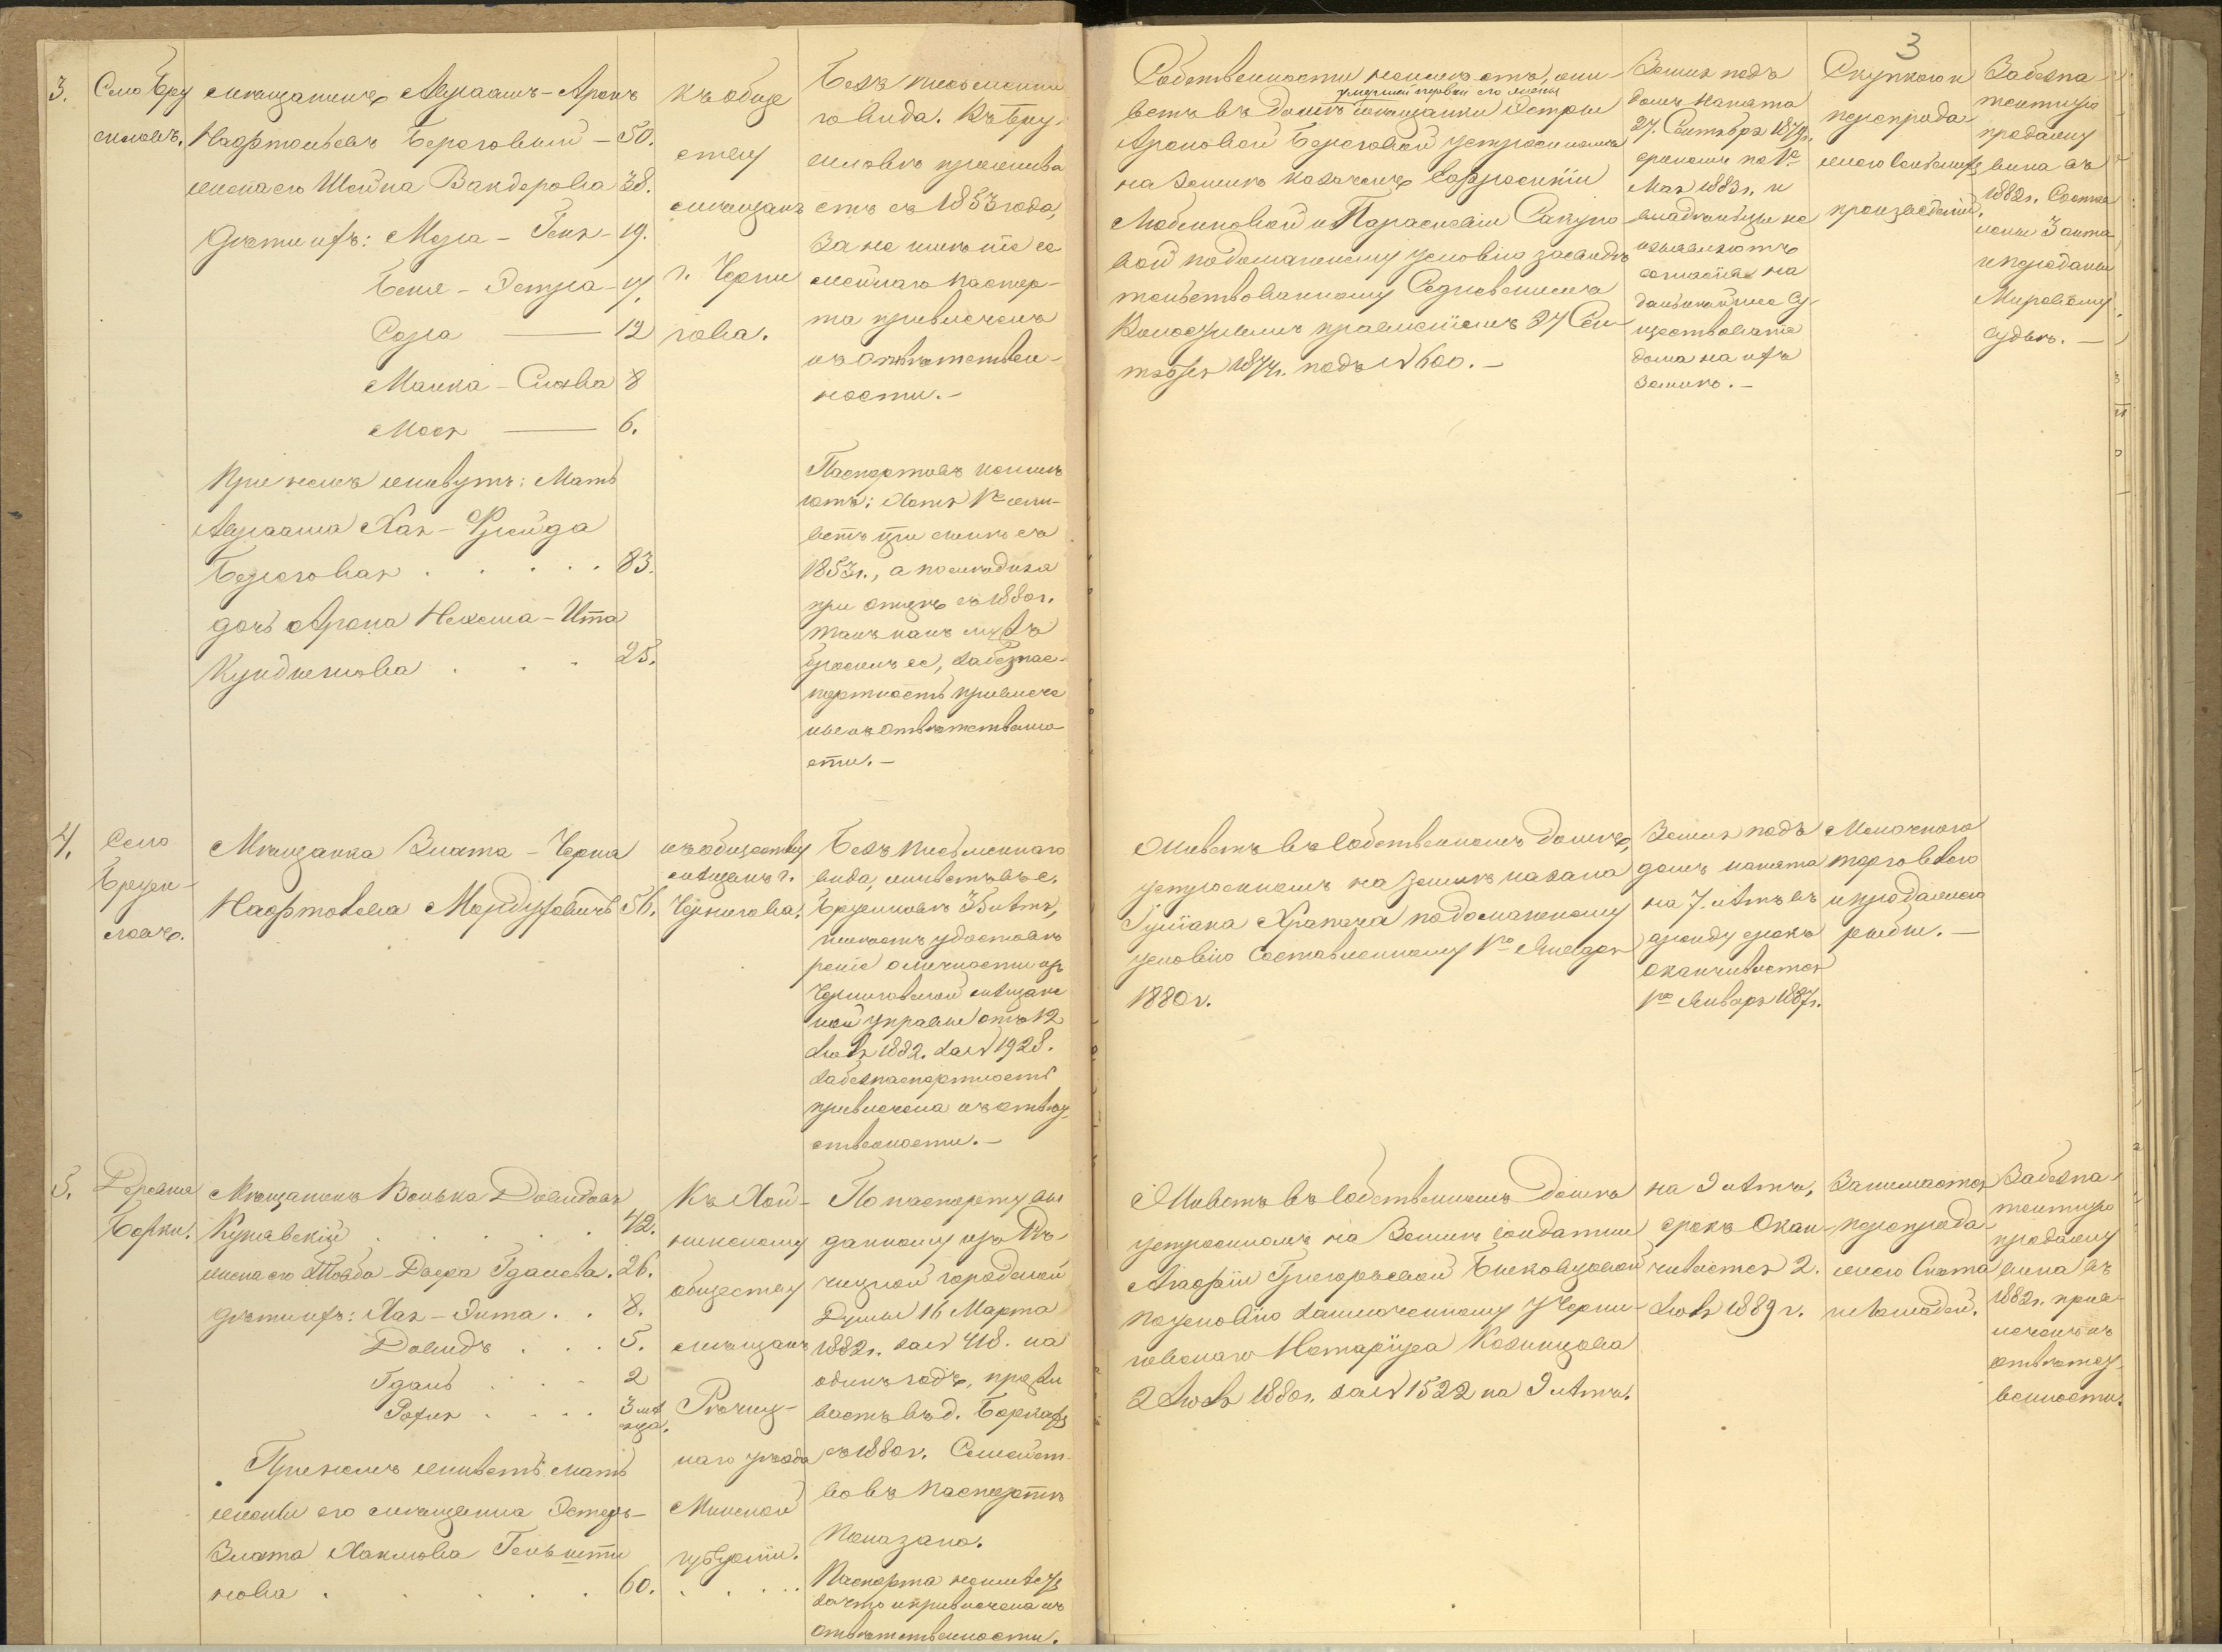 3
3.
Село Бру
силовъ.
мещанинъ Авраамъ-Аронъ
Нафтольевъ Береговый — 50.
жена его Шейна Вандерова 38.
Дѣти ихъ: Мера - Геня - 19.
Бейля - Эстра - 17.
Сора — 12
Малка - Слава 8
Мося — 6.
При немъ живутъ: Мать
Авраама Хая - Фрейда
Береговая . . . . . 83.
дочь Арона Нехема - Ита
. . . 25.
къ обще
ству
мѣщанъ
г. Черни
гова.
Безъ письменна
го вида. Въ Бру-
силовѣ прожива
етъ съ 1853 года,
За не имѣніе се
мейнаго паспор-
та привлеченъ
къ отвѣтствен-
ности. —
Паспортовъ не имѣ
ютъ: Хотя 1я жи-
ветъ при сынѣ съ
1853 г., а послѣдняя
при отцѣ съ 1880 г.
такъ какъ мужъ
бросилъ ее, за безпас-
портность привлече
ны къ отвѣтственно
сти. —
Собственности не имѣетъ, жи-
умершей первой его жены
ветъ въ домѣ мѣщанки Эстры
Ароновой Береговой устроенномъ
на землѣ казачекъ Ефросиніи
и Параскевіи
вой по домашнему условію засвидѣ
тельствованному Седневскимъ
Волостнымъ правленіемъ 27 Сен-
тября 1874 г. подъ № 600. —
Земля подъ
домъ нанята
27. Сентября 1874 г.
срокомъ по 1е
Мая 1883 г. и
владѣлицы не
изъявляютъ
согласія на
дальнѣйшее су-
ществованіе
дома на ихъ
землѣ. —
Скупкою и
перепрода-
жею сельскихъ
произведеній.
За безпа-
тентную
продажу
вина въ
1882 г. Состав
лены 3 акта
и переданы
Мировому
Судьѣ. —
4.
Село
Брусил-
ловъ.
Мѣщанка Злата - Черна
Нафтолева Мордуховичъ 56.
къ обществу
мѣщанъ г.
Чернигова.
Безъ письменнаго
вида, живетъ въ с.
Брусиловѣ 35 лѣтъ,
имѣетъ удостовѣ
реніе о личности изъ
Черниговской мѣщанс
кой управы отъ 12
Іюля 1882. за № 1928.
за безпаспортность
привлечена къ отвѣт-
ственности. —
Живетъ въ собственномъ домѣ,
устроенномъ на землѣ казака
по домашнему
условію составленному 1го Января
1880 г.
Земля подъ
домъ нанята
на 7. лѣтъ въ
аренду срокъ
оканчивается
1го Января 1887 г.
Мелочною
торговлею
и продажею
рыбы. —
5.
Деревня
Борки.
Мѣщанинъ Волька Давидовъ
. . . . . 42.
жена его Товба - Двера Гдалева. 26.
Дѣти ихъ: Хая - Энта . . 8.
Давидъ . . . 5.
Гдаль . . . 2
Рафия . . . . 3 мѣ
сяца.
При немъ живетъ мать
жены его мѣщанка Эстеръ -
Злата Хаимова
нова . . . . . 60.
Къ Хой-
никскому
обществу
мѣщанъ
Рѣчиц-
наго уѣзда
Минской
губерніи.
По паспорту вы
данному изъ Рѣ-
чицкой городской
Думы 16 Марта
1882 г. за № 418. на
одинъ годъ, прожи
ваетъ въ д. Боркахъ
съ 1880 г. Семейст-
во въ паспортѣ
показано.
Паспорта не имѣетъ
за что и привлечена къ
отвѣтственности.
Живетъ въ собственномъ домѣ
устроенномъ на землѣ солдатки
Агафіи Григорьевой
по условію заключенному у Черни-
говскаго Нотаріуса
2 Іюля 1880 г. за № 1522 на 9 лѣтъ.
на 9 лѣтъ,
срокъ окан-
чивается 2.
Іюля 1889 г.
Занимается
перепрода-
жею скота
и лошадей.
За безпа-
тентную
продажу
вина въ
1882 г. прив-
лечен къ
отвѣтст-
венности.